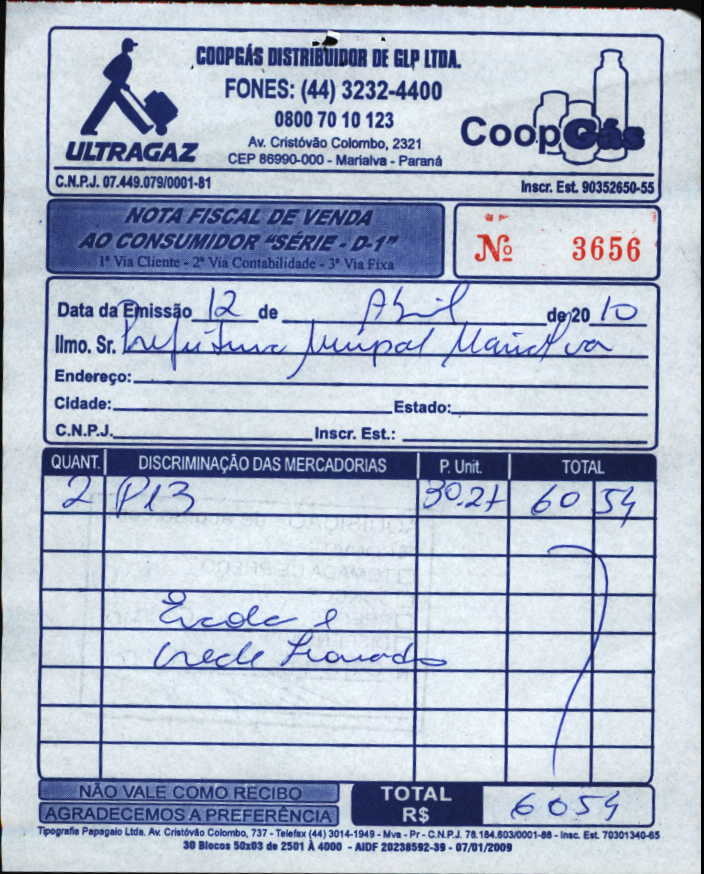 COOPGÁS DISTRIBUIDOR DE GLP LTDA.
FONES: (44) 3232-4400
0800 70 10 123
Av. Cristóvão Colombo, 2321
CEP 86990-000 - Marialva - Paraná
ULTRAGAZ
CoopGás
C.N.P.J. 07.449.079/0001-81
Inscr. Est. 90352650-55
NOTA FISCAL DE VENDA
AO CONSUMIDOR "SÉRIE - D-1"
1ª Via Cliente - 2ª Via Contabilidade - 3ª Via Fixa
Nº 3656
Data da Emissão 12 de Abril de 2010
Ilmo. Sr. Prefeitura Munipal Marialva
Endereço:
Cidade: Estado:
C.N.P.J. Inscr. Est.:
QUANT. DISCRIMINAÇÃO DAS MERCADORIAS P. Unit. TOTAL
2 P13 30.27 60 54
Escola e
NÃO VALE COMO RECIBO
AGRADECEMOS A PREFERÊNCIA
TOTAL
R$ 6054
Tipografia Papagaio Ltda. Av. Cristóvão Colombo, 737 - Telefax (44) 3014-1949 - Mva - Pr - C.N.P.J. 78.184.603/0001-88 - Insc. Est. 70301340-65
30 Blocos 50x03 de 2501 À 4000 - AIDF 20238592-39 - 07/01/2009